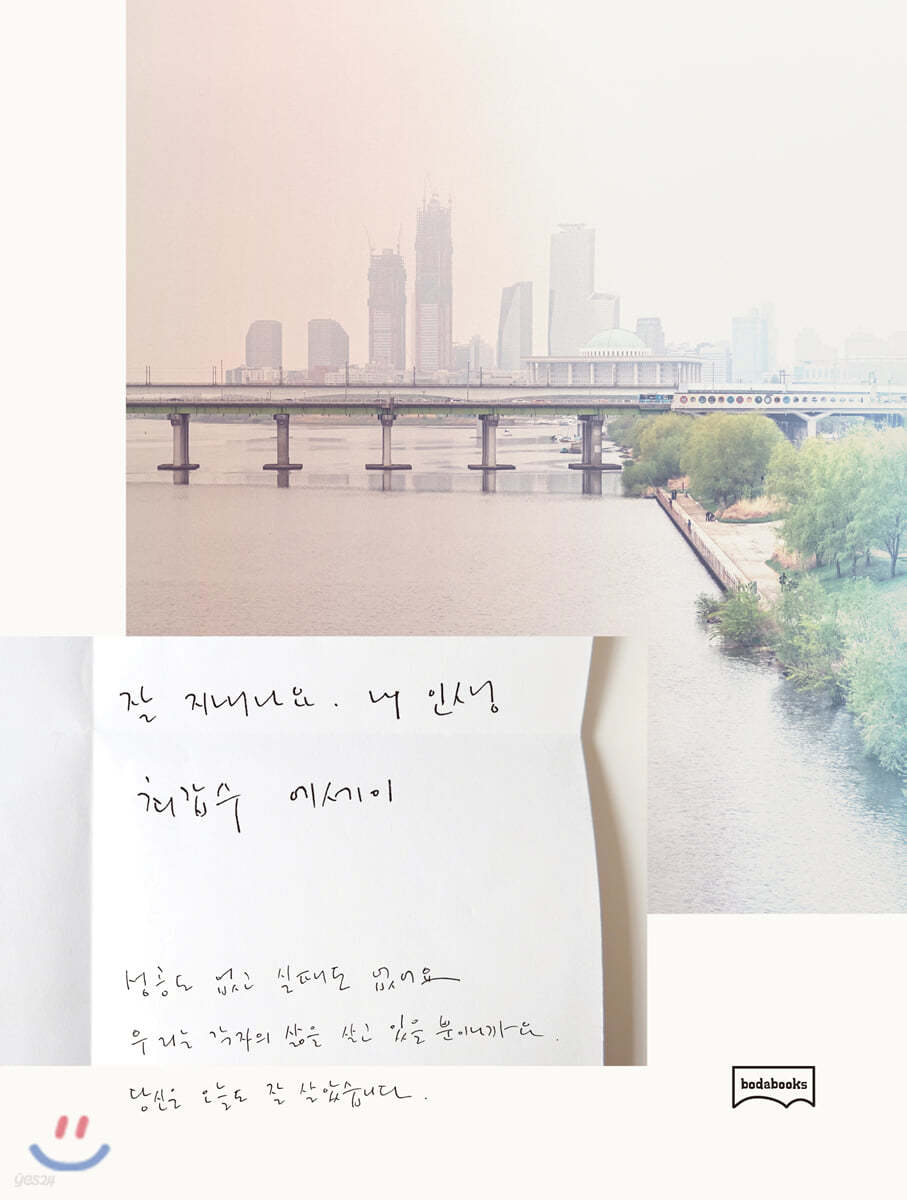 잘 지내나요. 내 인생
최갑수 에세이
성공도 없고 실패도 없어요
우리는 각자의 삶을 살고 있을 뿐이니까요.
당신은 오늘도 잘 살았습니다.
bodabooks
yes24